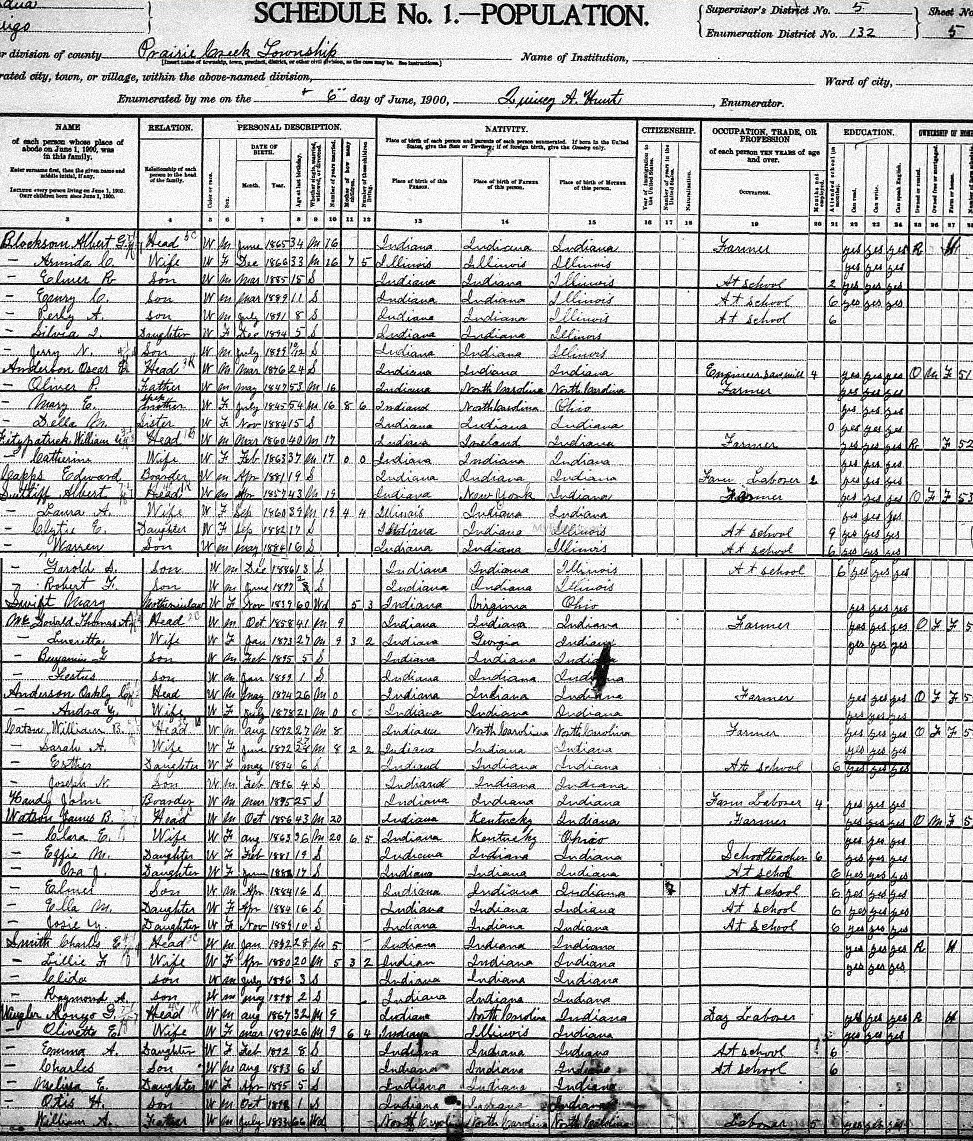 SCHEDULE No. 1.—POPULATION.
Supervisor's District No. 5
Enumeration District No. 132
Sheet No
5
or division of county Prairie Creek Township Name of Institution,
rated city, town, or village, within the above-named division, Ward of city,
Enumerated by me on the 6" day of June, 1900, Quincy A. Hunt, Enumerator.
NAME RELATION. PERSONAL DESCRIPTION. NATIVITY. CITIZENSHIP. OCCUPATION, TRADE, OR PROFESSION EDUCATION. OWNERSHIP OF HOME
of each person whose place of abode on June 1, 1900, was in this family.
Relationship of each person to the head of the family.
DATE OF BIRTH. Month. Year.
Place of birth of this PERSON. Place of birth of FATHER of this person. Place of birth of MOTHER of this person.
of each person TEN YEARS of age and over.
OCCUPATION.
3 4 5 6 7 8 9 10 11 12 13 14 15 16 17 18 19 20 21 22 23 24 25 26 27 28
Blocksom Albert G. Head W m June 1865 34 M 16 Indiana Indiana Indiana Farmer yes yes yes R H
— Armida C. Wife W F Dec 1866 33 M 16 7 5 Illinois Illinois Illinois yes yes yes
— Elmer R Son W m Mar 1885 15 S Indiana Indiana Illinois At school 2 yes yes yes
— Emry C. Son W m Mar 1889 11 S Indiana Indiana Illinois At school 6 yes yes yes
— Perly A. Son W m July 1891 8 S Indiana Indiana Illinois At school 6
— Silvia I. Daughter W F Dec 1894 5 S Indiana Indiana Illinois
— Jerry N. Son W m July 1899 S Indiana Indiana Illinois
Anderson Oscar Head W m Mar 1876 24 S Indiana Indiana Indiana Engineer sawmill 4 yes yes yes O M F 51
— Oliver P. Father W m May 1847 53 M 16 Indiana North Carolina North Carolina Farmer yes yes yes
— Mary E. Step mother W F July 1845 54 M 16 8 6 Indiana North Carolina Ohio yes yes yes
— Della M. Sister W F Nov 1884 15 S Indiana Indiana Indiana 0 yes yes yes
Fitzpatrick William Head W m Mar 1860 40 M 17 Indiana Ireland Indiana Farmer yes yes yes R F 52
— Catherine Wife W F Feb 1863 37 M 17 0 0 Indiana Indiana Indiana yes yes yes
Capps Edward Boarder W m Apr 1881 19 S Indiana Indiana Indiana Farm Laborer 2 yes yes yes
Sutliff Albert Head W m Apr 1857 43 M 19 Indiana New York Indiana Farmer yes yes yes O F F 53
— Laura A. Wife W F Sep 1860 39 M 19 4 4 Illinois Indiana Indiana yes yes yes
— Clytie E. Daughter W F Sep 1882 17 S Indiana Indiana Illinois At school 9 yes yes yes
— Warren Son W m May 1884 16 S Indiana Indiana Illinois At school 6 yes yes yes
— Harold S. Son W m Dec 1886 13 S Indiana Indiana Illinois At school 6 yes yes yes
— Robert F. Son W m June 1897 2 S Indiana Indiana Illinois
Swift Mary Mother in law W F Nov 1839 60 Wd 5 3 Indiana Virginia Ohio yes yes yes
McDonald Thomas A Head W m Oct 1858 41 M 9 Indiana Indiana Indiana Farmer yes yes yes O F F 5
— Luretta Wife W F Jan 1873 27 M 9 3 2 Indiana Georgia Indiana yes yes yes
— Benjamin F Son W m Feb 1895 5 S Indiana Indiana Indiana
— Festus Son W m Jan 1899 1 S Indiana Indiana Indiana
Anderson Oakly Head W m May 1874 26 M 0 Indiana Indiana Indiana Farmer yes yes yes O F F 5
— Audra Wife W F July 1878 21 M 0 Indiana Indiana Indiana yes yes yes
William B. Head W m Aug 1872 27 M 8 Indiana North Carolina North Carolina Farmer yes yes yes O F F 5
— Sarah A. Wife W F June 1872 M 8 2 2 Indiana Indiana Indiana yes yes yes
— Esther Daughter W F May 1894 6 S Indiana Indiana Indiana At school 6 yes yes yes
— Joseph N. Son W m Feb 1896 4 S Indiana Indiana Indiana
Handy John Boarder W m Mar 1895 25 S Indiana Indiana Indiana Farm Laborer 4 yes yes yes
Watson B. Head W m Oct 1856 43 M 20 Indiana Kentucky Indiana Farmer yes yes yes O M F 5
— Clara E. Wife W F Aug 1863 36 M 20 6 5 Indiana Kentucky Ohio yes yes yes
— Effie M. Daughter W F Feb 1881 19 S Indiana Indiana Indiana School teacher 6 yes yes yes
— Ora J. Daughter W F June 17 S Indiana Indiana Indiana At school 6 yes yes yes
— Elmer Son W m Apr 1884 16 S Indiana Indiana Indiana At school 6 yes yes yes
— Ella M. Daughter W F Apr 1884 16 S Indiana Indiana Indiana At school 6 yes yes yes
— Josie Daughter W F Nov 1889 10 S Indiana Indiana Indiana At school 6 yes yes yes
Smith Charles E. Head W m Jan 1872 28 M 5 Indiana Indiana Indiana yes yes yes R H
— Lillie F Wife W F Apr 1880 20 M 5 3 2 Indian Indiana Indiana yes yes yes
— Clida Son W m July 1896 3 S Indiana Indiana Indiana
— Raymond A. Son W m 1898 2 S Indiana Indiana Indiana
Alonzo G. Head W m Aug 1867 32 M 9 Indiana North Carolina Indiana Day Laborer yes yes yes R H
— Olivette E. Wife W F Mar 1874 26 M 9 6 4 Indiana Illinois Indiana yes yes yes
— Emma A. Daughter W F Feb 1892 8 S Indiana Indiana Indiana At school 6
— Charles Son W m Aug 1893 6 S Indiana Indiana Indiana At school 6
— Melissa E. Daughter W F Apr 1895 5 S Indiana Indiana Indiana
— Otis H. Son W m Oct 1898 1 S Indiana Indiana Indiana
— William A. Father W m July 1833 66 Wd North Carolina North Carolina North Carolina Laborer 5 yes yes yes